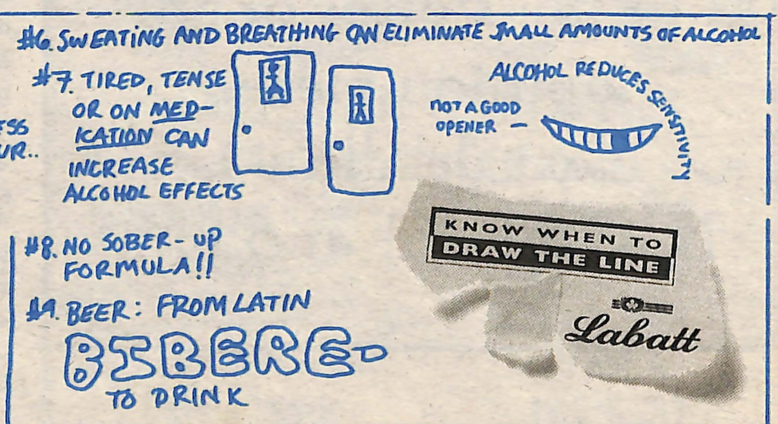 #6. SWEATING AND BREATHING CAN ELIMINATE SMALL AMOUNTS OF ALCOHOL
#7. TIRED, TENSE
OR ON MED-
ICATION CAN
INCREASE
ALCOHOL EFFECTS
ALCOHOL REDUCES SENSITIVITY
NOT A GOOD
OPENER —
#8. NO SOBER-UP
FORMULA!!
#9. BEER: FROM LATIN
BIBERE-
TO DRINK
KNOW WHEN TO
DRAW THE LINE
Labatt